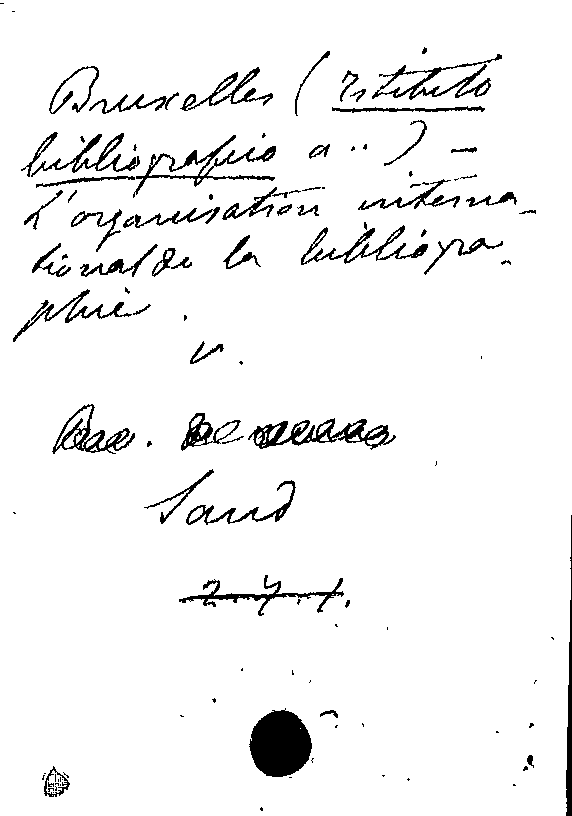 Bruxelles (Istituto
bibliografico a..) —
L'organisation interna-
tional de la bibliogra-
phie.
v.
Sand
2.4.1.